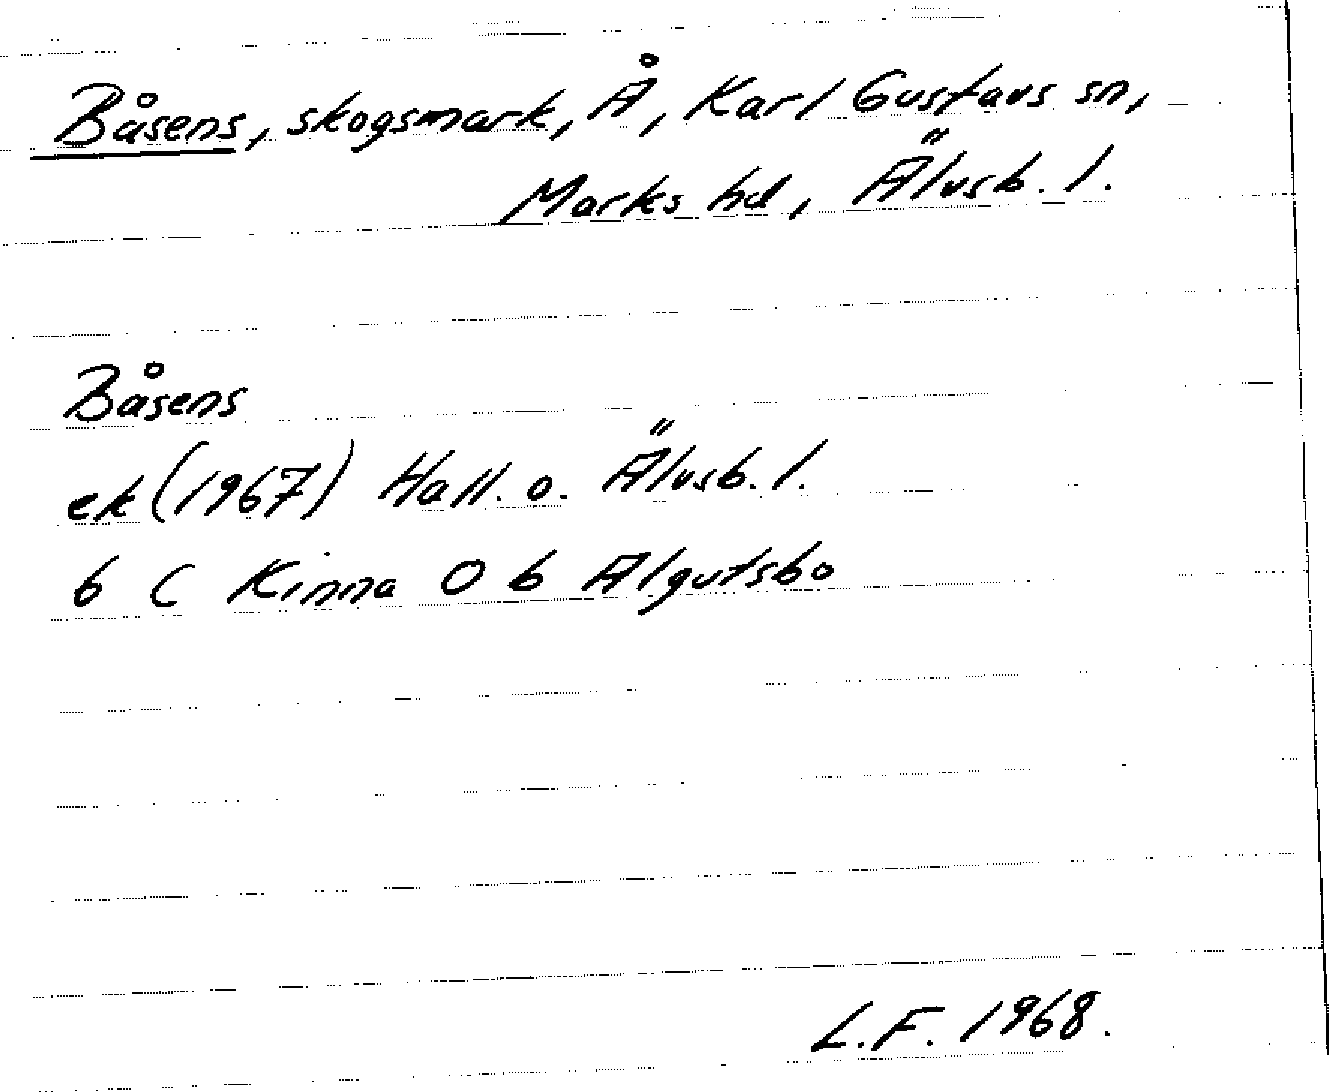 Båsens, skogsmark, Å, Karl Gustavs sn,
Marks hd, Älvsb. l.
Båsens
ek (1967) Hall. o. Älvsb. l.
6 C Kinna 0 6 Algutsbo
L.F. 1968.